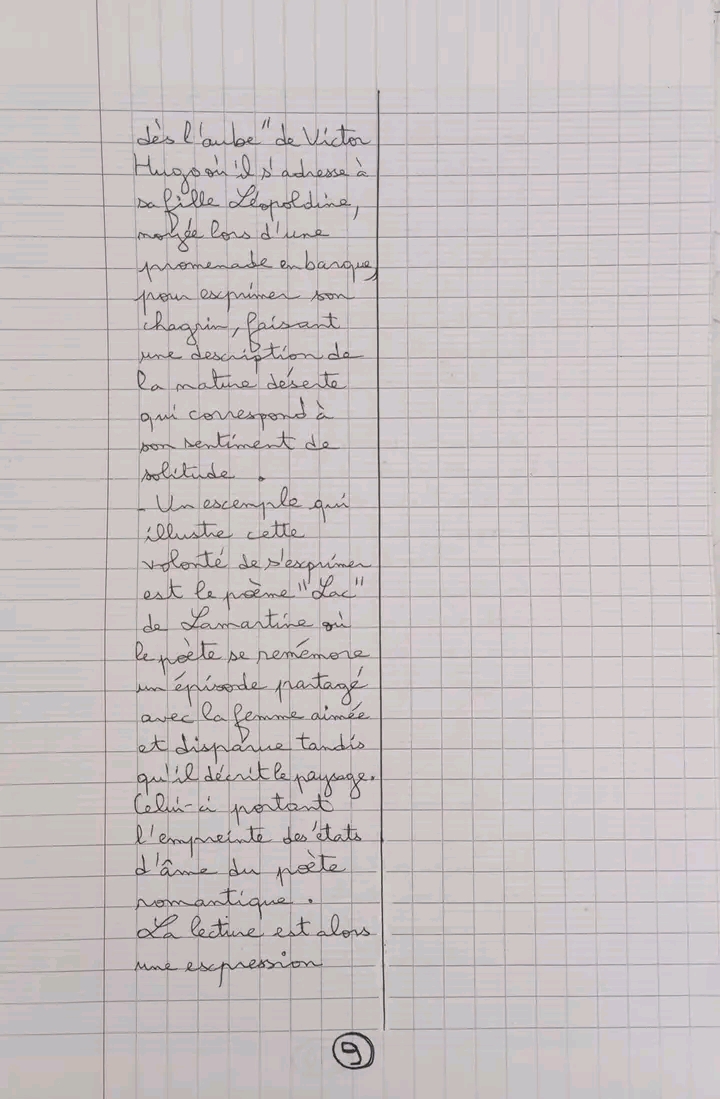 dès l'aube" de Victor
Hugo où il s'adresse à
sa fille Léopoldine,
noyée lors d'une
promenade en barque,
pour exprimer son
chagrin, faisant
une description de
la nature déserte
qui correspond à
son sentiment de
solitude.
- Un escemple qui
illustre cette
volonté de s'exprimer
est le poème "Lac"
de Lamartine où
le poète se remémore
un épisode partagé
avec la femme aimée
et disparue tandis
qu'il décrit le paysage.
Celui-ci portant
l'empreinte des états
d'âme du poète
romantique.
La lecture est alors
une expression
9